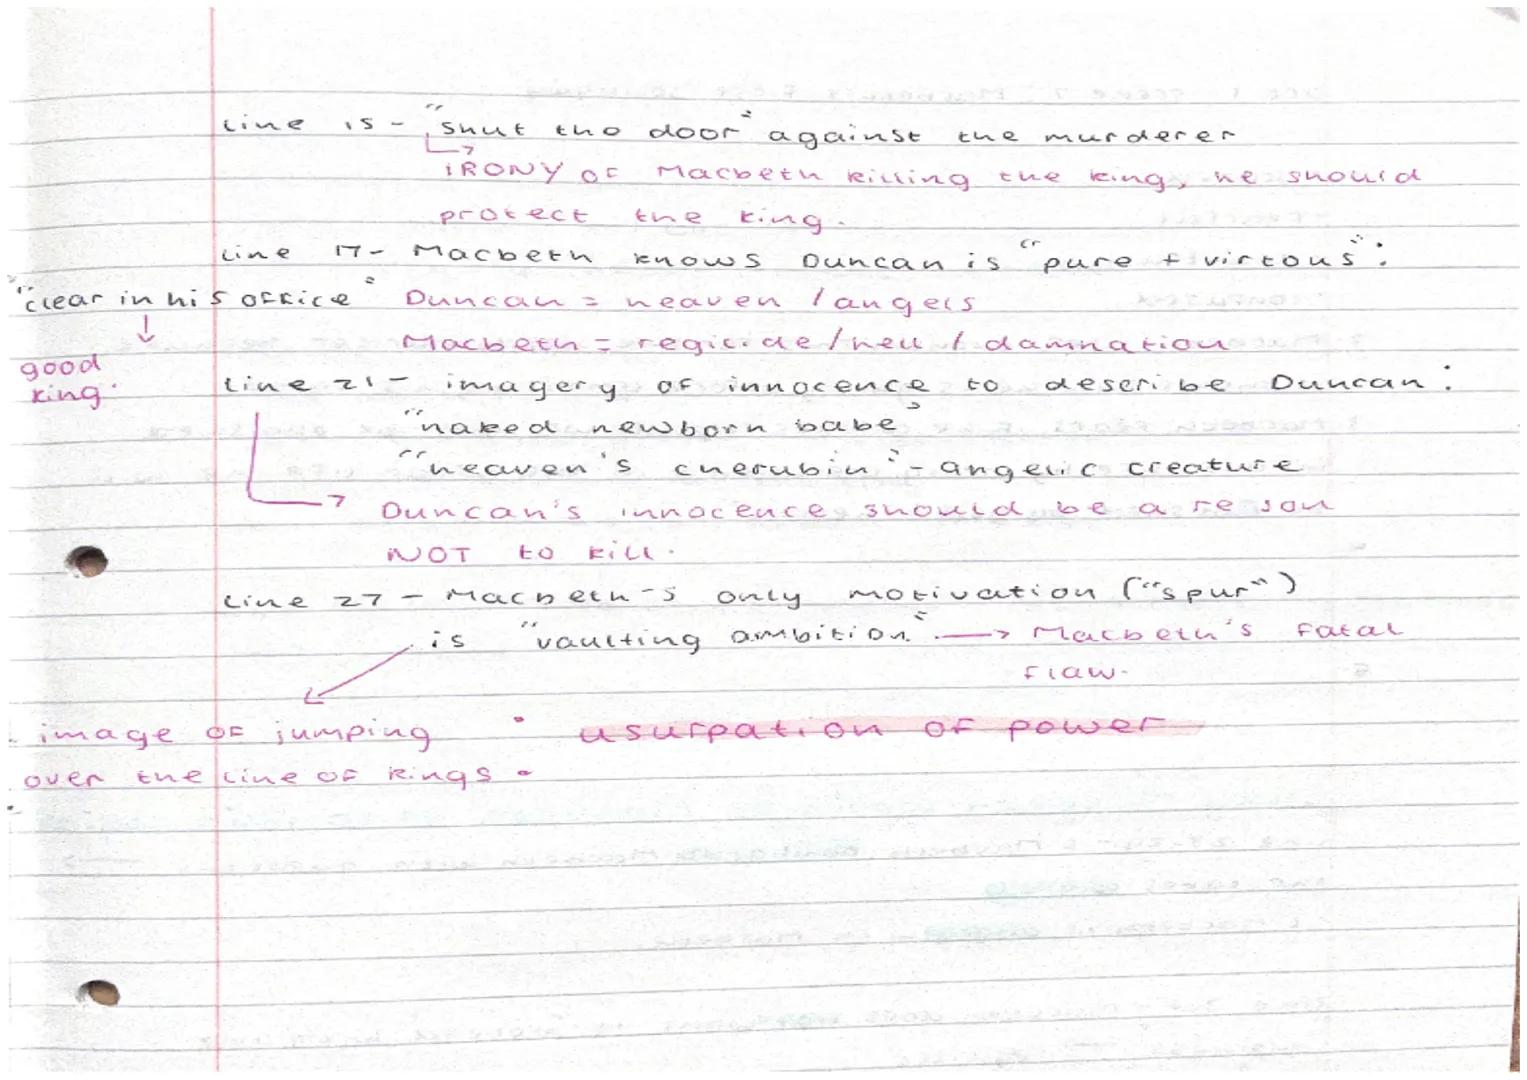 Line 15 - "shut the door" against the murderer
IRONY OF Macbeth killing the king, he should
protect the king.
Line 17 - Macbeth knows Duncan is "pure + virtous":
"clear in his office" Duncan = heaven / angels
Macbeth = regicide / hell / damnation
good
king.
Line 21 - imagery of innocence to describe Duncan:
"naked newborn babe"
"heaven's cherubin" - angelic creature
Duncan's innocence should be a reason
NOT to kill.
Line 27 - Macbeth's only motivation ("spur")
is "vaulting ambition" Macbeth's fatal
flaw.
image of jumping • usurpation of power
over the line of kings.